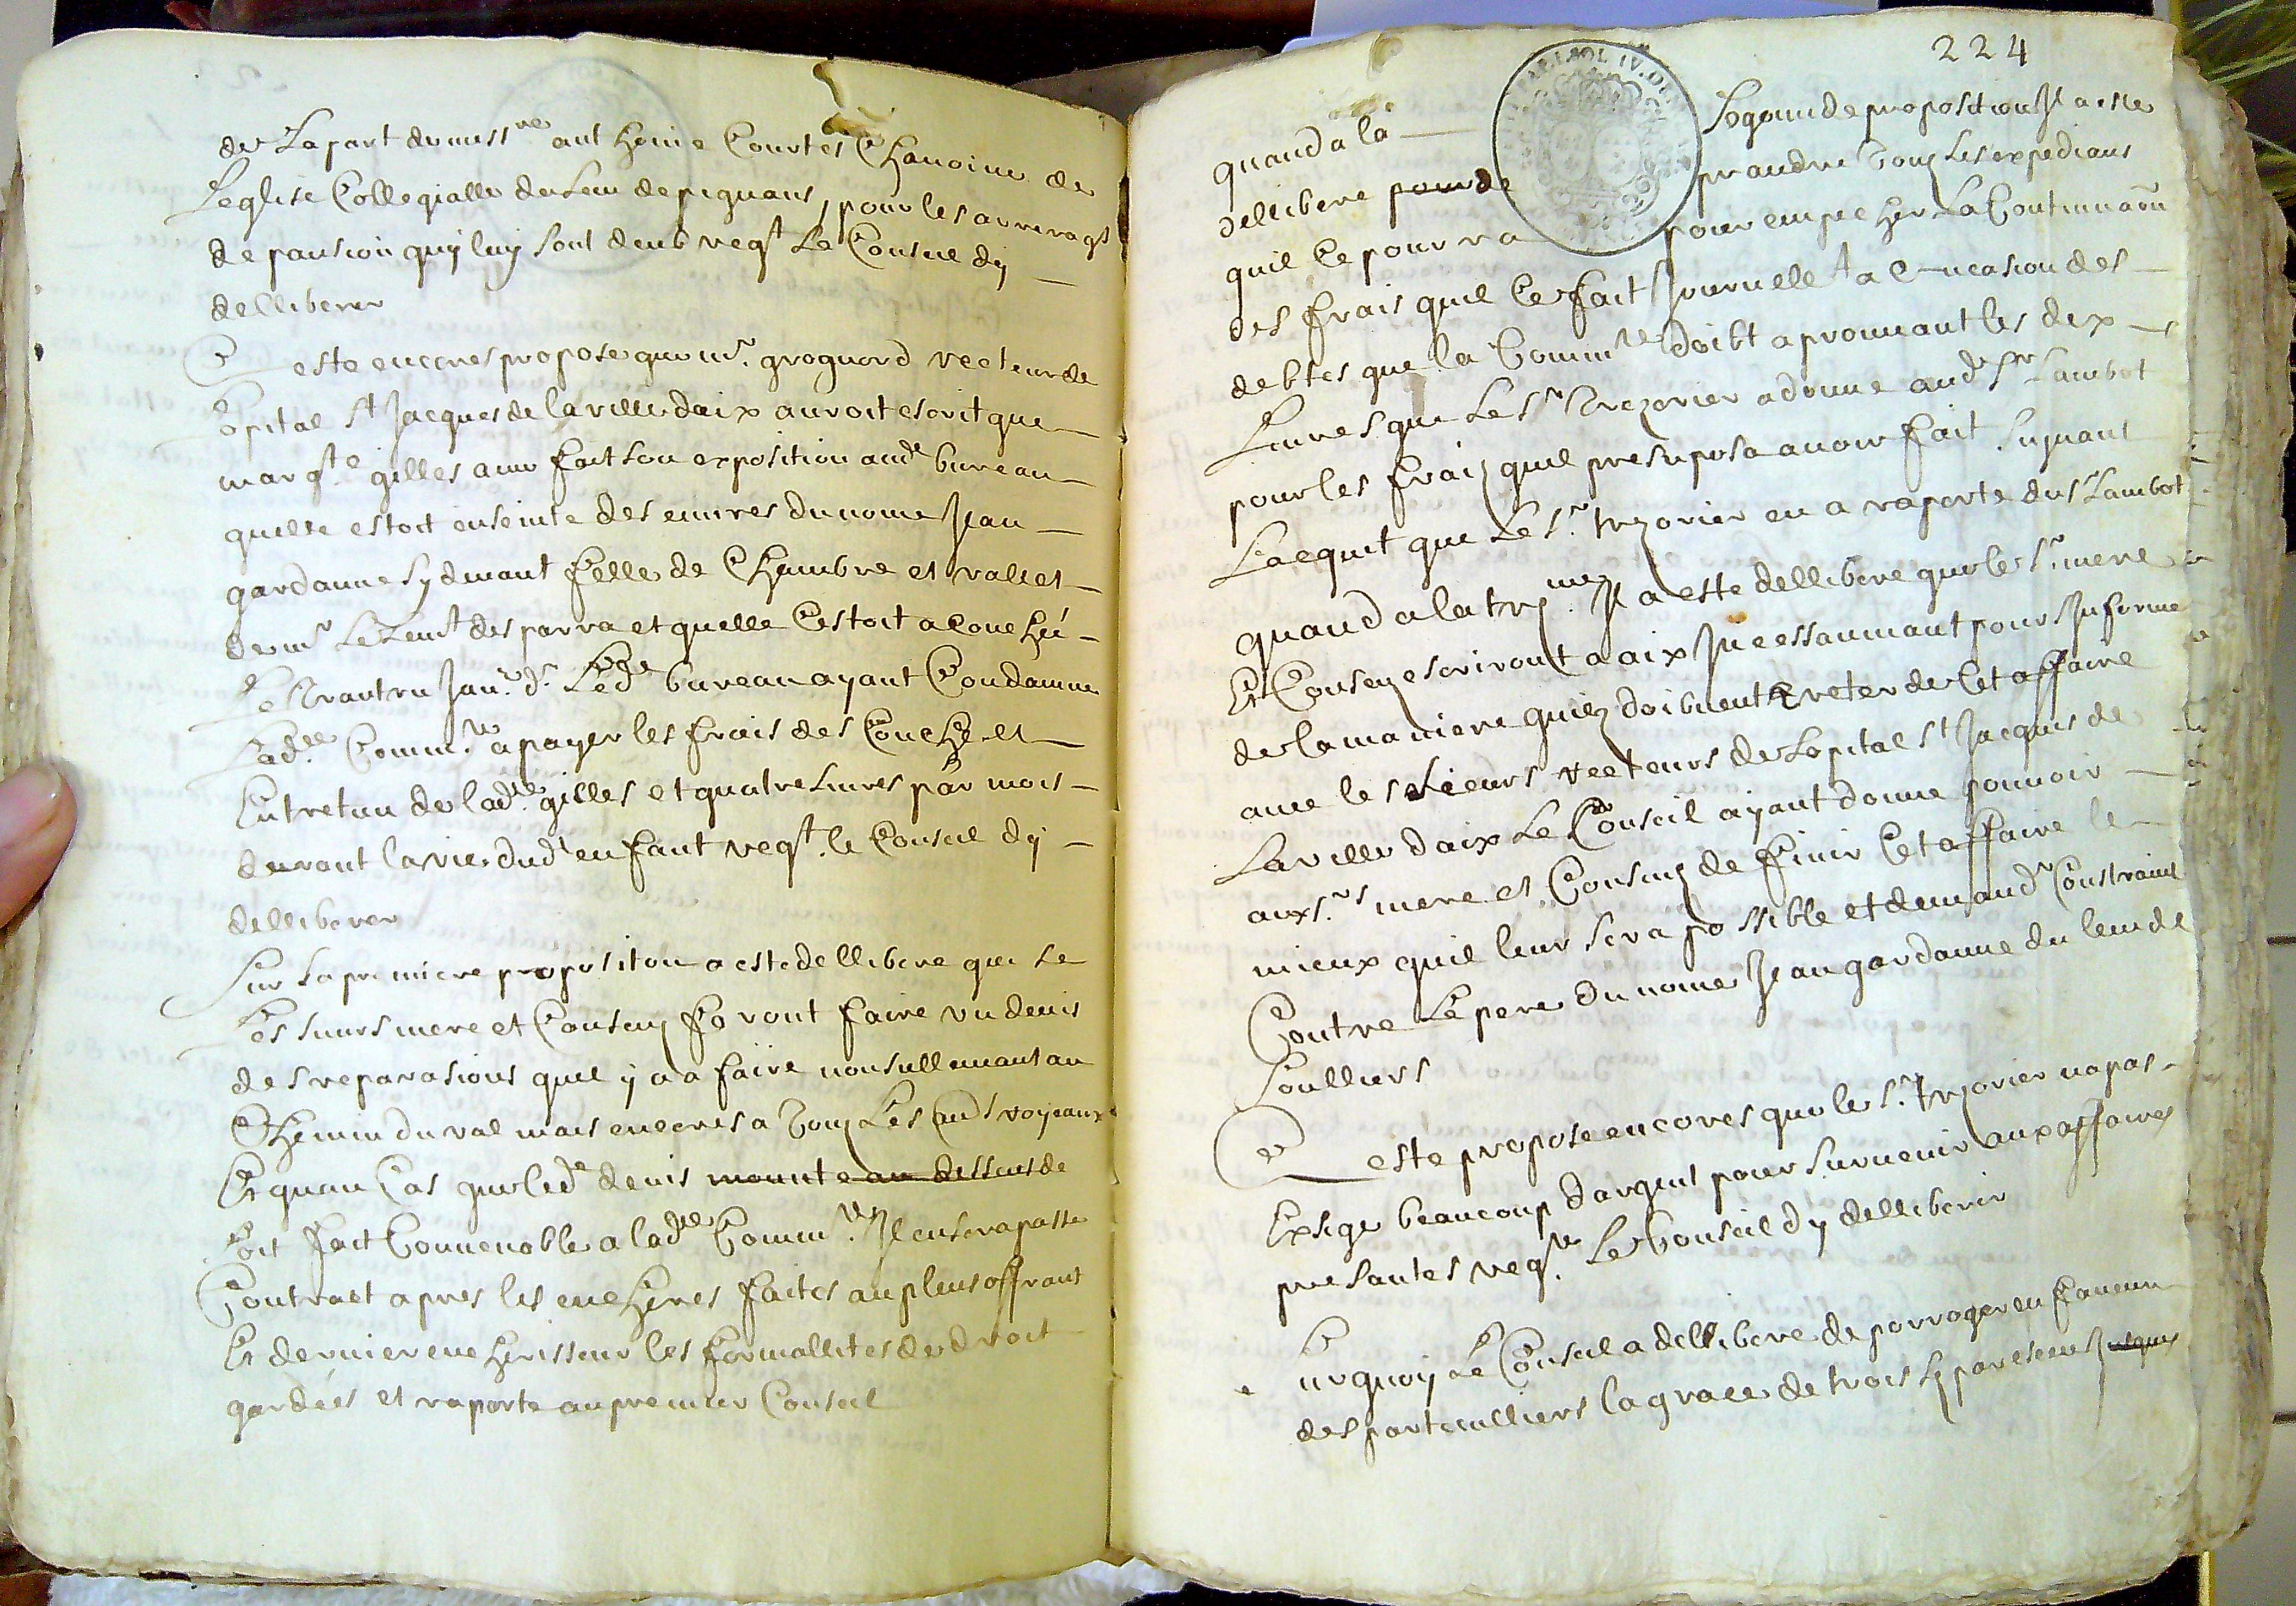 de Lapart de mess.re anthoine Courtes Chanoine de
Leglise Collegialle deu Lieu de pignans, pour les arrerages
de pansion quy luy sont deub req.t Le Conseil dy
delliberer
este encores propose que m.r grognard recteur de
Lopital s.t Jacques de la ville daix auroit escrit que
marg.te gilles a eue fait son exposition aud.t bureau
quelle estoit enseinte des euvres du nome Jean
gardanne sy devant felle de Chambre et vallet
de m.r Le Lieu.t des parra et quelle Cestoit acouchée
Le Trantru Janv.r d.r Led.t bureau ayant Condamne
Lad.te Comm.te a payer les frais des Couche et
Entretien de lad.te gilles et quatre Livres par mois
durant la vie dud.t enfant req.t le Conseil dy
delliberer
Sur La premiere proposition a este dellibere que Le
Les sieurs mere et Consey feront faire un devis
des reparasions quil y a a faire nonsullemant au
Chemin du val mais encores a Touz Les aud.s voyeaux
Et quau Cas que led.t devis mounte au dessus de
soit fait Convenable a lad.te Comm.te Il en sera passe
Contract apres les encheres faites au plus offrant
Et dernier encherisseur les formallites de droit
gardées et raporte au premier Conseil
224
quand a la segonde proposition Il a este
dellibere pour de prandre Touz Les expedians
quil Ce pourra pour empecher La Continuaon
des frais quil Ce fait Journellet a Cucasion des
debtes que la Comm.te doibt aprouvant les dix
Livres que Le S.r Trezorier a donne aud. S.r Lambot
pour les fraiz quil presuposa avoir fait suyvant
Lacquit que Le S.r trezorier en a raporte du s.r Lambot
quand a la try.me Il a este dellibere que le s.r mere
Et Consey escriront a aix Incessaumant pour sinforme
de la maniere quiez doibvent treter de Cet affaire
avec les sieurs recteurs de Lopital s.t Jacques de
La ville daix Le Conseil ayant donne pouvoir
aux s.rs mere et Conseuz de finir Cet affaire le
mieux quil leur sera possible et demand.r Constraint
Contre Le pere du nome Jean gardanne du lieu de
Soulliers
este propose encores que le s.r trezorier na pas
Exsige beaucoup dargent pour survenir aux affaires
presantes req.re Le Conseil dy delliberer
Surquoy Le Conseil a dellibere de porroger en faveur
des particulliers la grace de trois s. par escus Jusques